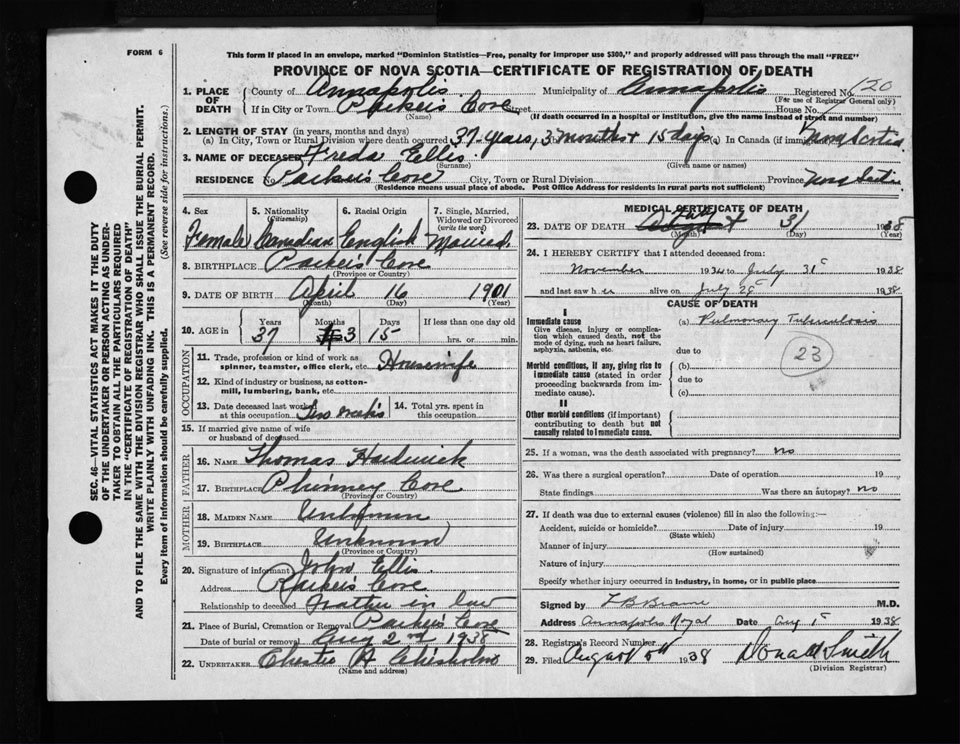 FORM 6
This form if placed in an envelope, marked "Dominion Statistics—Free, penalty for improper use $300," and properly addressed will pass through the mail "FREE"
PROVINCE OF NOVA SCOTIA—CERTIFICATE OF REGISTRATION OF DEATH
SEC. 46—VITAL STATISTICS ACT MAKES IT THE DUTY
OF THE UNDERTAKER OR PERSON ACTING AS UNDER-
TAKER TO OBTAIN ALL THE PARTICULARS REQUIRED
IN THE "CERTIFICATE OF REGISTRATION OF DEATH"
AND TO FILE THE SAME WITH THE DIVISION REGISTRAR WHO SHALL ISSUE THE BURIAL PERMIT.
WRITE PLAINLY WITH UNFADING INK. THIS IS A PERMANENT RECORD.
Every item of information should be carefully supplied. (See reverse side for instructions.)
1. PLACE OF DEATH
County of Annapolis Municipality of Annapolis Registered No. 120
(For use of Registrar General only)
If in City or Town Parker's Cove Street House No.
(Name) (If death occurred in a hospital or institution, give the name instead of street and number)
2. LENGTH OF STAY (in years, months and days)
(a) In City, Town or Rural Division where death occurred 37 years, 3 months + 15 days (b) In Canada (if immigrant) Nova Scotia
3. NAME OF DECEASED Freda Ellis
(Surname) (Given name or names)
RESIDENCE No. Parker's Cove City, Town or Rural Division Province Nova Scotia
(Residence means usual place of abode. Post Office Address for residents in rural parts not sufficient)
4. Sex 5. Nationality (Citizenship) 6. Racial Origin 7. Single, Married, Widowed or Divorced (write the word)
Female Canadian English Married
8. BIRTHPLACE Parker's Cove
(Province or Country)
9. DATE OF BIRTH April 16 1901
(Month) (Day) (Year)
10. AGE in Years Months Days If less than one day old
37 3 15 hrs. or min.
OCCUPATION
11. Trade, profession or kind of work as
spinner, teamster, office clerk, etc. Housewife
12. Kind of industry or business, as cotton-
mill, lumbering, bank, etc.
13. Date deceased last worked
at this occupation 14. Total yrs. spent in
this occupation
15. If married give name of wife
or husband of deceased
FATHER
16. NAME Thomas Hardwick
17. BIRTHPLACE Phinney Cove
(Province or Country)
MOTHER
18. MAIDEN NAME Unknown
19. BIRTHPLACE Unknown
(Province or Country)
20. Signature of informant John Ellis
Address Parker's Cove
Relationship to deceased in law
21. Place of Burial, Cremation or Removal Parker's Cove
Date of burial or removal Aug 2nd 1938
22. UNDERTAKER A Chisholm
(Name and address)
MEDICAL CERTIFICATE OF DEATH
23. DATE OF DEATH July 31 1938
(Month) (Day) (Year)
24. I HEREBY CERTIFY that I attended deceased from:
November 1934 to July 31st 1938
and last saw her alive on July 29th 1938
CAUSE OF DEATH
I
Immediate cause
Give disease, injury or complica-
tion which caused death, not the
mode of dying, such as heart failure,
asphyxia, asthenia, etc.
(a) Pulmonary Tuberculosis
23
due to
Morbid conditions, if any, giving rise to
immediate cause (stated in order
proceeding backwards from im-
mediate cause).
(b)
due to
(c)
II
Other morbid conditions (if important)
contributing to death but not
causally related to immediate cause.
25. If a woman, was the death associated with pregnancy? no
26. Was there a surgical operation? Date of operation 19
State findings Was there an autopsy? no
27. If death was due to external causes (violence) fill in also the following:—
Accident, suicide or homicide? Date of injury 19
(State which)
Manner of injury
(How sustained)
Nature of injury
Specify whether injury occurred in industry, in home, or in public place
Signed by M.D.
Address Annapolis Royal Date Aug 1st 1938
28. Registrar's Record Number
29. Filed August 1938 Donald Smith
(Division Registrar)